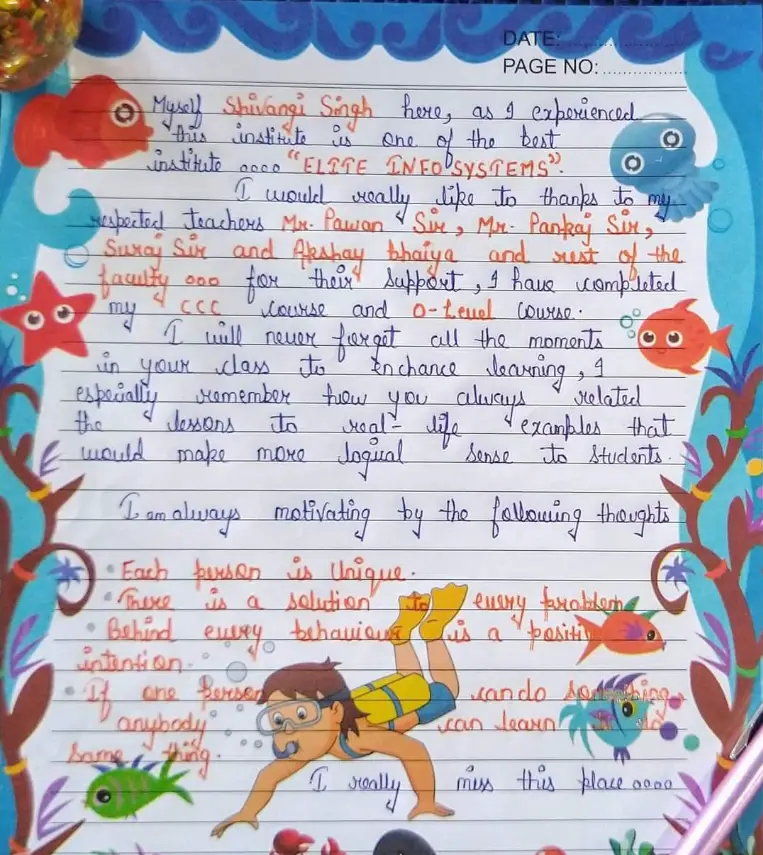 DATE: ....................
PAGE NO: ..................
Myself Shivangi Singh here, as I experienced
this institute is one of the best
institute oooo "ELITE INFOSYSTEMS".
I would really like to thanks to my
respected teachers Mr. Pawan Sir, Mr. Pankaj Sir,
Suraj Sir and Akshay bhaiya and rest of the
faculty ooo for their support, I have completed
my CCC course and O-Level course.
I will never forget all the moments
in your class to Enchance learning, I
especially remember how you always related
the lessons to real-life examples that
would make more logical sense to students.
I am always motivating by the following thoughts
• Each person is Unique.
• There is a solution to every problem
• Behind every behaviour is a positi
intention.
• If one person can do something,
anybody can learn
same thing.
I really miss this place oooo